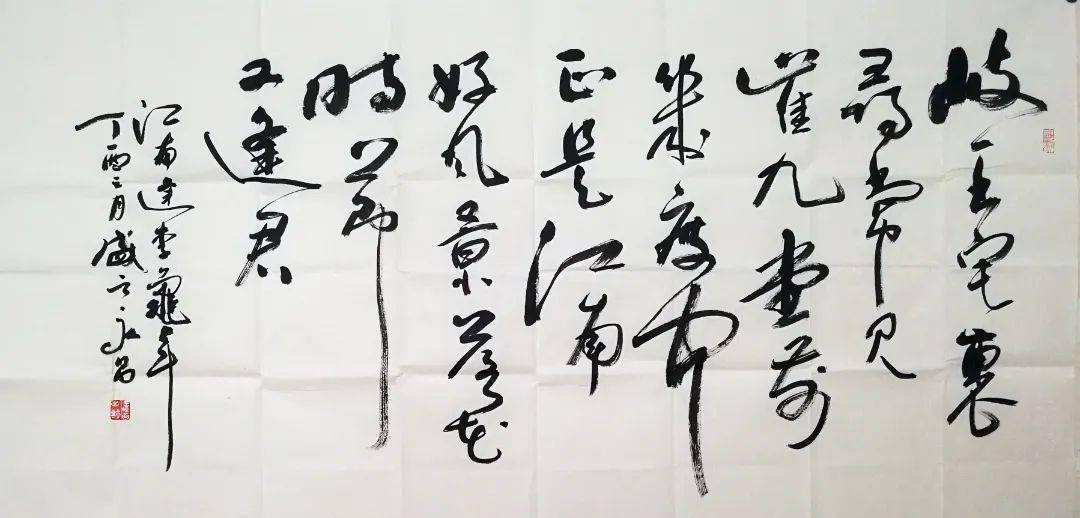 岐王宅裏
尋常見
崔九堂前
幾度聞
正是江南
好風景落花
時節
又逢君
江南逢李龜年
丁酉二月